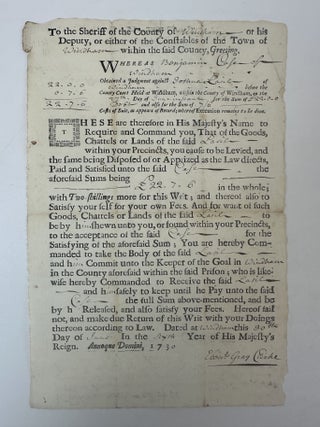 To the Sheriff of the County of Windham or his
Deputy, or either of the Constables of the Town of
Windham within said County, Greeting.
WHEREAS Benjamin Case of
Windham
22.0.0 Obtained a Judgment against
0.7.6 Windham before the
County Court Held at Windham, within the County of Windham, on the
22.7.6 Day of for the Sum of £22.0.0
and also for the Sum of 7.6
Costs of Suit, as appears of Record; whereof Execution remains to be done.
THESE are therefore in His Majesty's NAME to
Require and Command you, That of the Goods,
Chattels or Lands of the said
within your Precincts, you cause to be Levied, and
the same being Disposed of or Apprized as the Law directs,
Paid and Satisfied unto the said Case the
aforesaid Sums being
£22.7.6 in the whole;
with Two shillings more for this Writ; and thereof also to
Satisfy your self for your own Fees. And for want of such
Goods, Chattels or Lands of the said
to be by him shewn unto you, or found within your Precincts,
to the acceptance of the said Case for the
Satisfying of the aforesaid Sum; You are hereby Com-
manded to take the Body of the said
and him Commit unto the Keeper of the Goal in Windham
in the County aforesaid within the said Prison; who is like-
wise hereby Commanded to Receive the said
and him safely to keep until he Pay unto the said
Case the full Sum above-mentioned, and be
by h Released, and also satisfy your Fees. Hereof fail
not, and make due Return of this Writ with your Doings
thereon according to Law. Dated at Windham this 30th
Day of June In the Year of His Majesty's
Reign. Annoque Domini, 1730
Gray Clerke